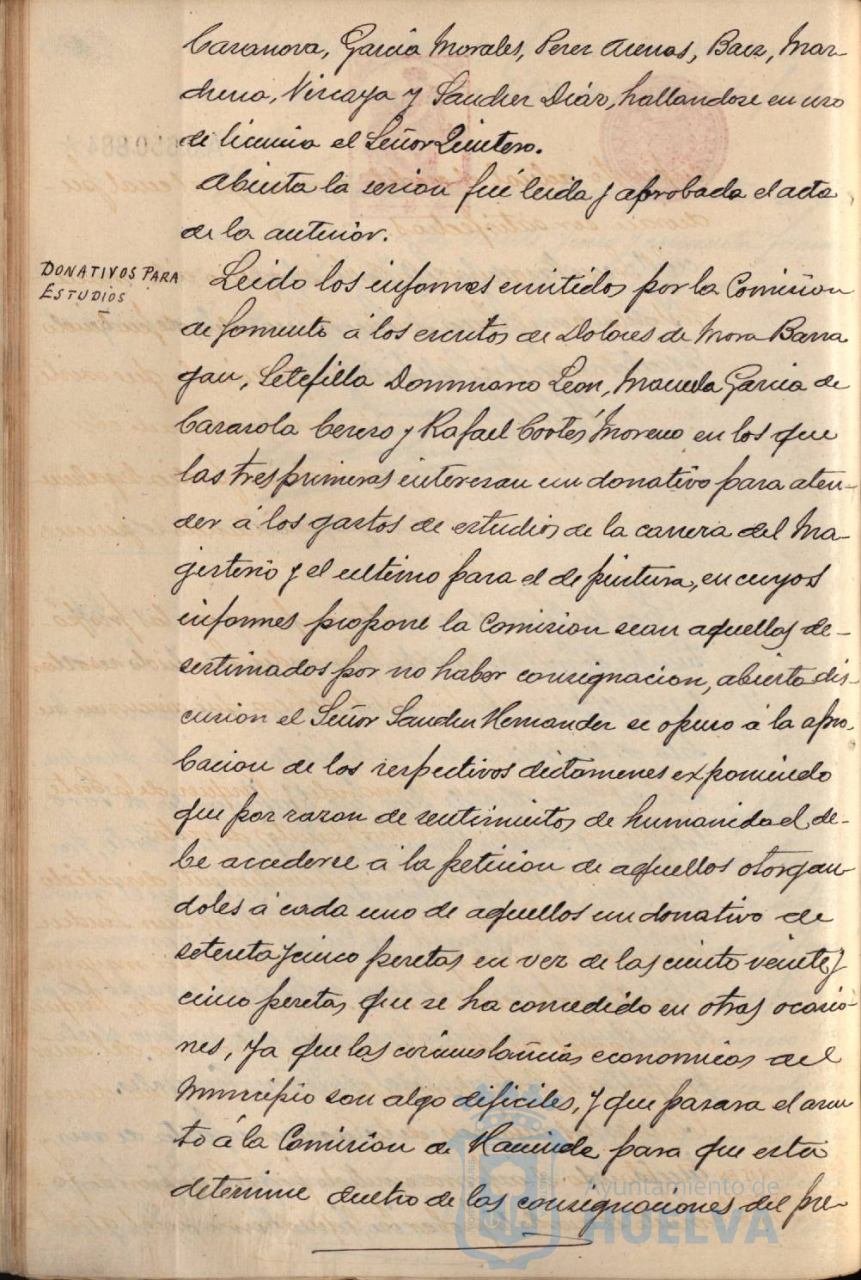 Casanova, Garcia Morales, Perez Arenas, Baez, Mar-
chena, Vizcaya y Sanchez Diáz, hallandose en uso
de licencia el Señor Quintero.
Abierta la sesion fué leida y aprobada el acta
de la anterior.
DONATIVOS PARA
ESTUDIOS
Leido los informes emitidos por la Comision
de fomento á los escritos de Dolores de Mora Barra
gan, Setefilla Dominguez Leon, Manuela Garcia de
Casasola Cerero y Rafael Cortés Moreno en los que
las tres primeras interesan un donativo para aten-
der á los gastos de estudios de la carrera del Ma-
gisterio y el ultimo para el de pintura, en cuyos
informes propone la Comision sean aquellos de-
sestimados por no haber consignacion, abierta dis-
cusion el Señor Sanchez Hernandez se opuso á la apro-
bacion de los respectivos dictamenes exponiendo
que por razon de sentimientos de humanidad de-
be accederse á la peticion de aquellos otorgan
doles á cada uno de aquellos un donativo de
setenta y cinco pesetas en vez de las ciento veinte y
cinco pesetas que se ha concedido en otras ocasio-
nes, ya que las circunstancias economicas del
Municipio son algo dificiles, y que pasara el asun
to á la Comision de Hacienda para que esta
determine dentro de las consignaciones del pre-
Ayuntamiento de
HUELVA